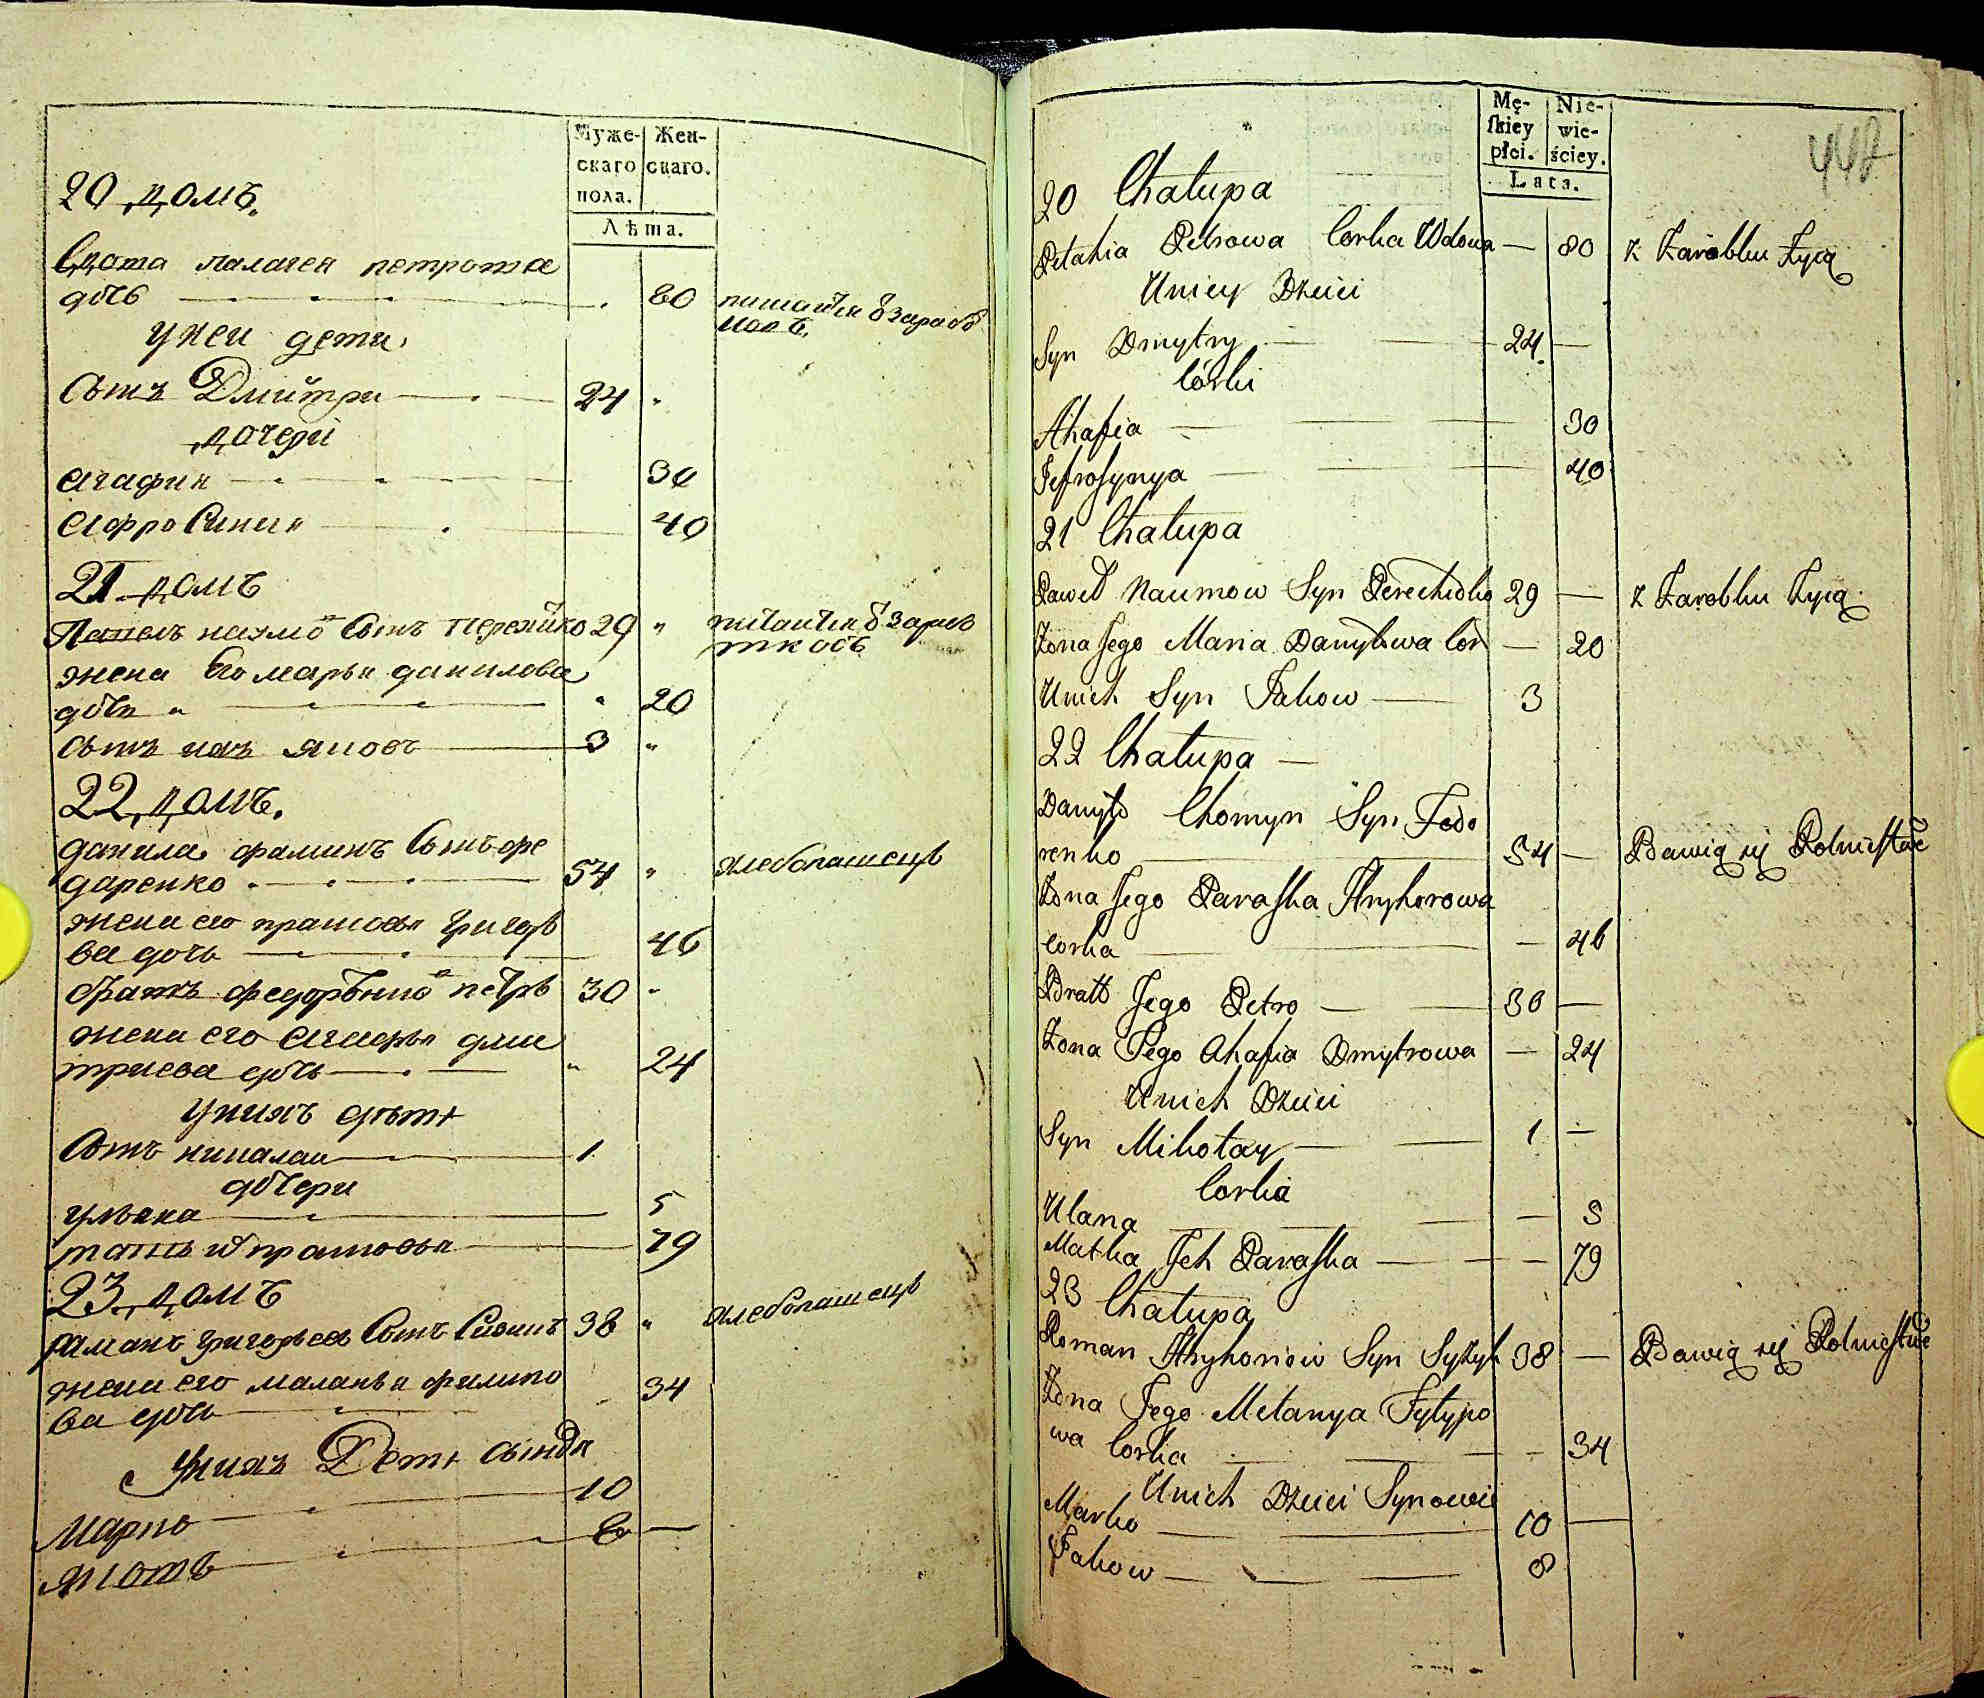 Муже-
скаго
пола.
Жен-
скаго.
Лѣта.
20 домъ.
Вдова палагея петрова
дочь 80 питаится Заработ
комъ
у неи дети
Сынъ Дмитри 24
дочери
агафия 30
афросиния 40
21 домъ
Павелъ наумо Сынъ 29 питаится Зарабо
ткомъ
жена его марья данилова
дочь 20
Сынъ ихъ яковъ 3
22 домъ.
данила фаминъ Сынъ фе
даренко 54 хлебопашецъ
жена его прасковья григорь
ва дочь 46
братъ петръ 30
жена его агафья дми
триева дочь 24
у нихъ дѣти
Сынъ никалаи 1
дочери
ульяна 5
мать прасковья 79
23 домъ
раманъ григорьевъ Сынъ 38 хлебопашецъ
жена его маланья филипо
ва дочь 34
у нихъ Дети сыновя
марко 10
яковъ 8
Mę-
skiey
płci.
Nie-
wie-
ściey.
Lata.
447
20 Chałupa
Petrowa Corka Wdowa — 80 z Zarobku Żyią
U niey Dzieci
Syn Dmytry 24 —
Córki
Ahafia 30
Jefrosynya 40
21 Chałupa
Paweł Naumow Syn 29 — z Zarobku Żyią
Zona Jego Maria Danyłowa Cor — 20
U nich Syn Jakow 3
22 Chałupa —
Danyło Chomyn Syn Fedo
renko 54 — Bawią się Rolnictwē
Zona Jego Paraska Hryhorowa
Corka — 46
Bratt Jego Petro — 30 —
Zona Jego Ahafia Dmytrowa — 24
U nich Dzieci
Syn Mikołay — 1 —
Corka
Ulana — 5
Matka Ich Paraska — 79
23 Chałupa
Roman Hryhoriow Syn 38 — Bawią się Rolnictwē
Zona Jego Melanya Fylypo
wa Corka — 34
U nich Dzieci Synowie
Marko 10 —
Jakow — 8